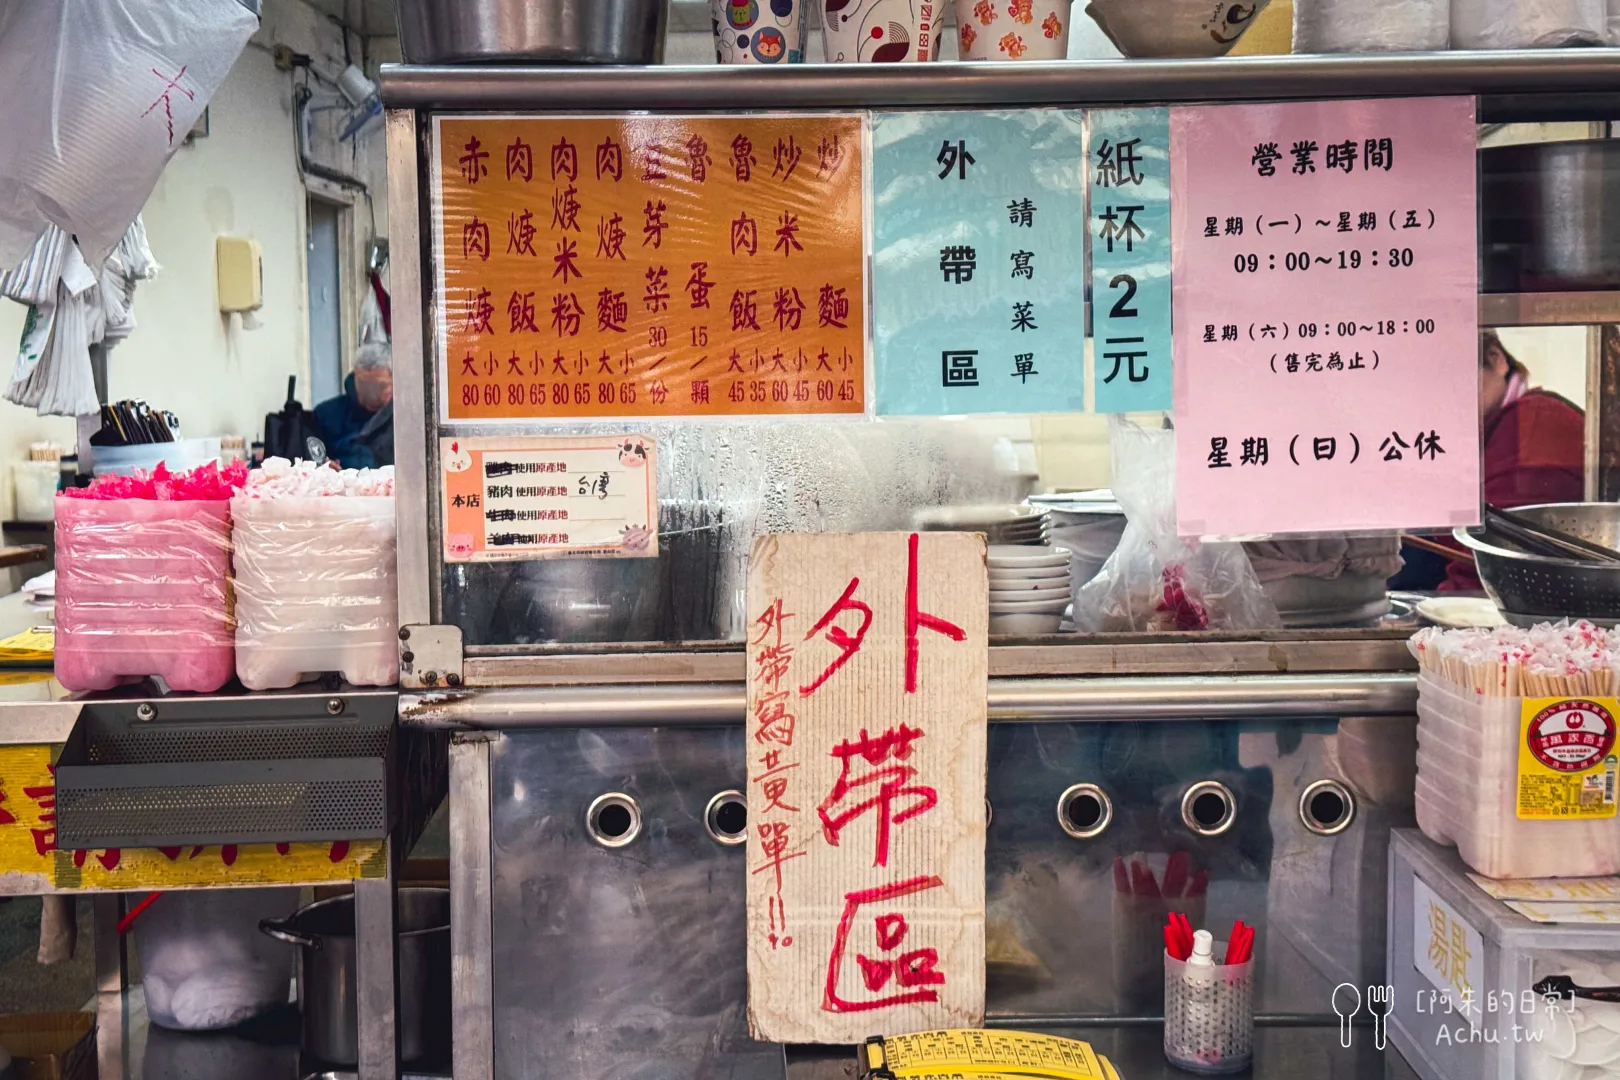 大
炒麵
大 小
60 45
炒米粉
大 小
60 45
魯肉飯
大 小
45 35
魯蛋
15/顆
豆芽菜
30/份
肉焿麵
大 小
80 65
肉焿米粉
大 小
80 65
肉焿飯
大 小
80 65
赤肉焿
大 小
80 60
外帶區
請寫菜單
紙杯2元
營業時間
星期（一）～星期（五）
09：00～19：30
星期（六）09：00～18：00
（售完為止）
星期（日）公休
本店
使用原產地
豬肉使用原產地 台灣
使用原產地
使用原產地
外帶區
外帶寫黃單!!
湯匙
[阿朱的日常]
Achu.tw